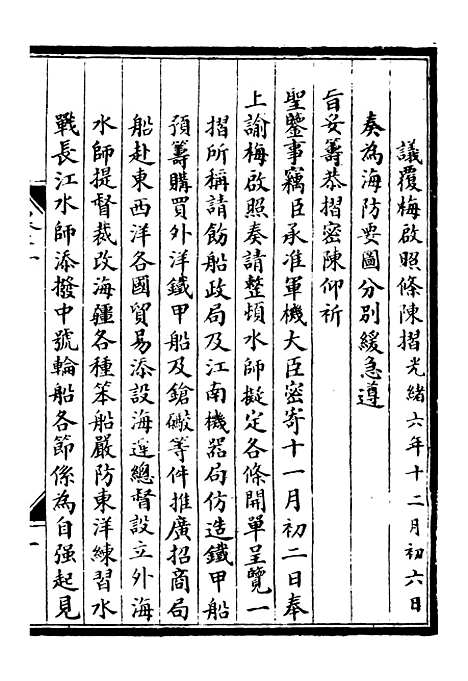 議覆梅啟照條陳摺光緒六年十二月初六日
奏為海防要圖分別緩急遵
旨妥籌恭摺密陳仰祈
聖鑒事竊臣承准軍機大臣密寄十一月初二日奉
上諭梅啟照奏請整頓水師擬定各條開單呈覽一
摺所稱請飭船政局及江南機器局仿造鐵甲船
預籌購買外洋鐵甲船及鎗礮等件推廣招商局
船赴東西洋各國貿易添設海運總督設立外海
水師提督裁改海疆各種笨船嚴防東洋練習水
戰長江水師添撥中號輪船各節係為自强起見